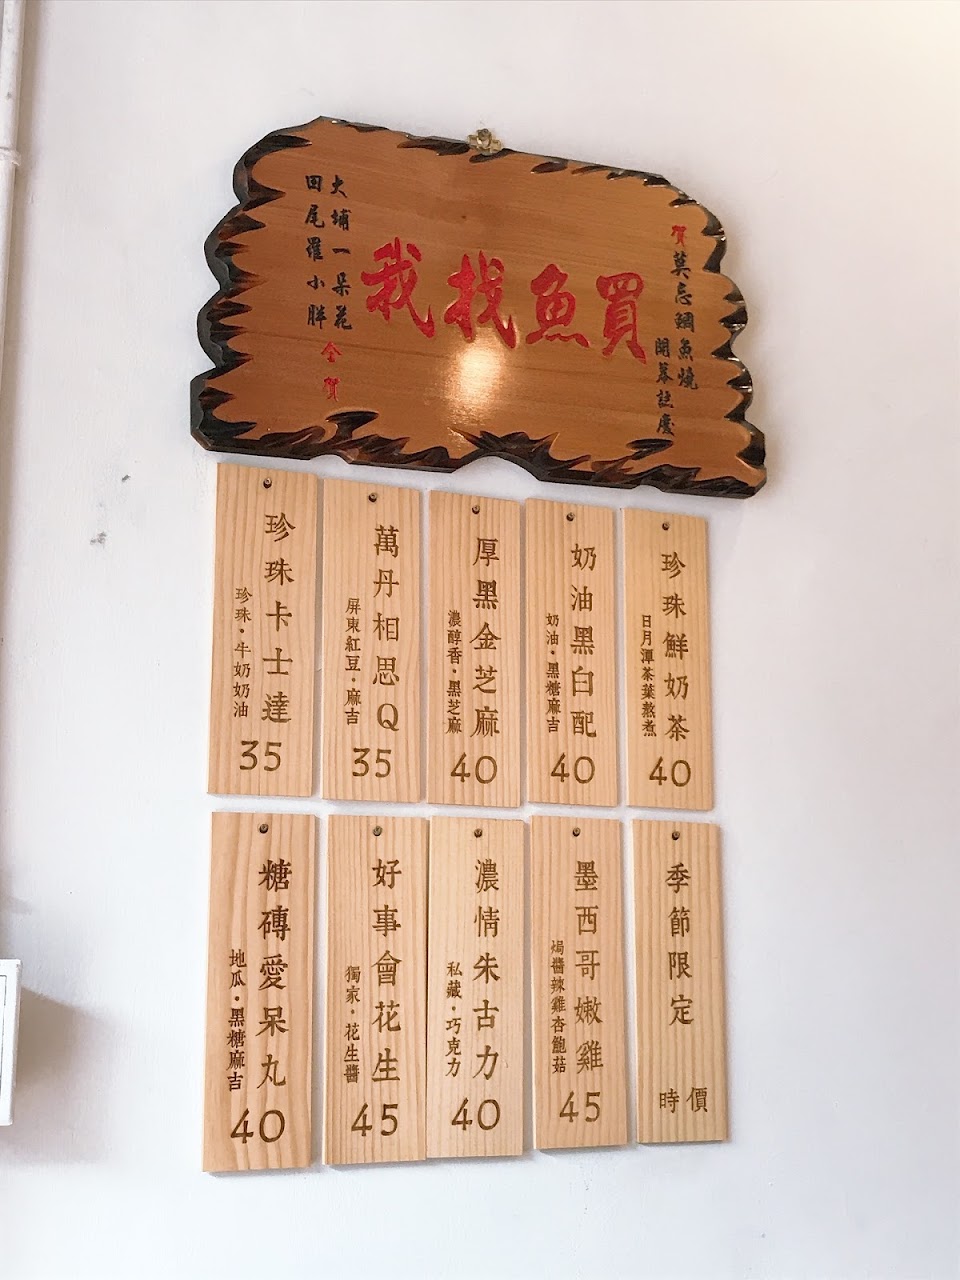 賀莫忘鯛魚燒
開幕誌慶
買魚找我
大埔一朵花
回尾羅小胖
仝賀
珍珠鮮奶茶
日月潭茶葉熬煮
40
奶油黑白配
奶油·黑糖麻吉
40
厚黑金芝麻
濃醇香·黑芝麻
40
萬丹相思Q
屏東紅豆·麻吉
35
珍珠卡士達
珍珠·牛奶奶油
35
季節限定
時價
墨西哥嫩雞
焗醬辣雞杏鮑菇
45
濃情朱古力
私藏·巧克力
40
好事會花生
獨家·花生醬
45
糖磚愛呆丸
地瓜·黑糖麻吉
40